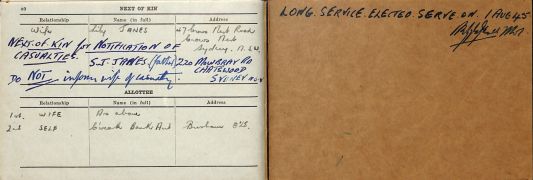 40
NEXT OF KIN
Relationship Name (in full) Address
Wife Lily JANES 47 Crows Nest Road
Crows Nest
Sydney. N.S.W.
NEXT OF KIN for NOTIFICATION OF
CASUALTIES. S.J. JANES (father) 220 MOWBRAY RD
CHATSWOOD
DO NOT inform wife of casualty. SYDNEY N.S.W
ALLOTTEE
Relationship Name (in full) Address
1st. WIFE As above
2nd SELF C'wealth Bank Brisbane
LONG SERVICE. ELECTED. SERVE. ON. 1 AUG 45